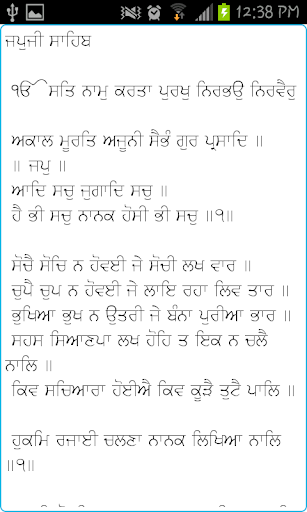 12:38 PM
ਜਪੁਜੀ ਸਾਹਿਬ
ੴ ਸਤਿ ਨਾਮੁ ਕਰਤਾ ਪੁਰਖੁ ਨਿਰਭਉ ਨਿਰਵੈਰੁ
ਅਕਾਲ ਮੂਰਤਿ ਅਜੂਨੀ ਸੈਭੰ ਗੁਰ ਪ੍ਰਸਾਦਿ ॥
॥ ਜਪੁ ॥
ਆਦਿ ਸਚੁ ਜੁਗਾਦਿ ਸਚੁ ॥
ਹੈ ਭੀ ਸਚੁ ਨਾਨਕ ਹੋਸੀ ਭੀ ਸਚੁ ॥੧॥
ਸੋਚੈ ਸੋਚਿ ਨ ਹੋਵਈ ਜੇ ਸੋਚੀ ਲਖ ਵਾਰ ॥
ਚੁਪੈ ਚੁਪ ਨ ਹੋਵਈ ਜੇ ਲਾਇ ਰਹਾ ਲਿਵ ਤਾਰ ॥
ਭੁਖਿਆ ਭੁਖ ਨ ਉਤਰੀ ਜੇ ਬੰਨਾ ਪੁਰੀਆ ਭਾਰ ॥
ਸਹਸ ਸਿਆਣਪਾ ਲਖ ਹੋਹਿ ਤ ਇਕ ਨ ਚਲੈ
ਨਾਲਿ ॥
ਕਿਵ ਸਚਿਆਰਾ ਹੋਈਐ ਕਿਵ ਕੂੜੈ ਤੁਟੈ ਪਾਲਿ ॥
ਹੁਕਮਿ ਰਜਾਈ ਚਲਣਾ ਨਾਨਕ ਲਿਖਿਆ ਨਾਲਿ
॥੧॥